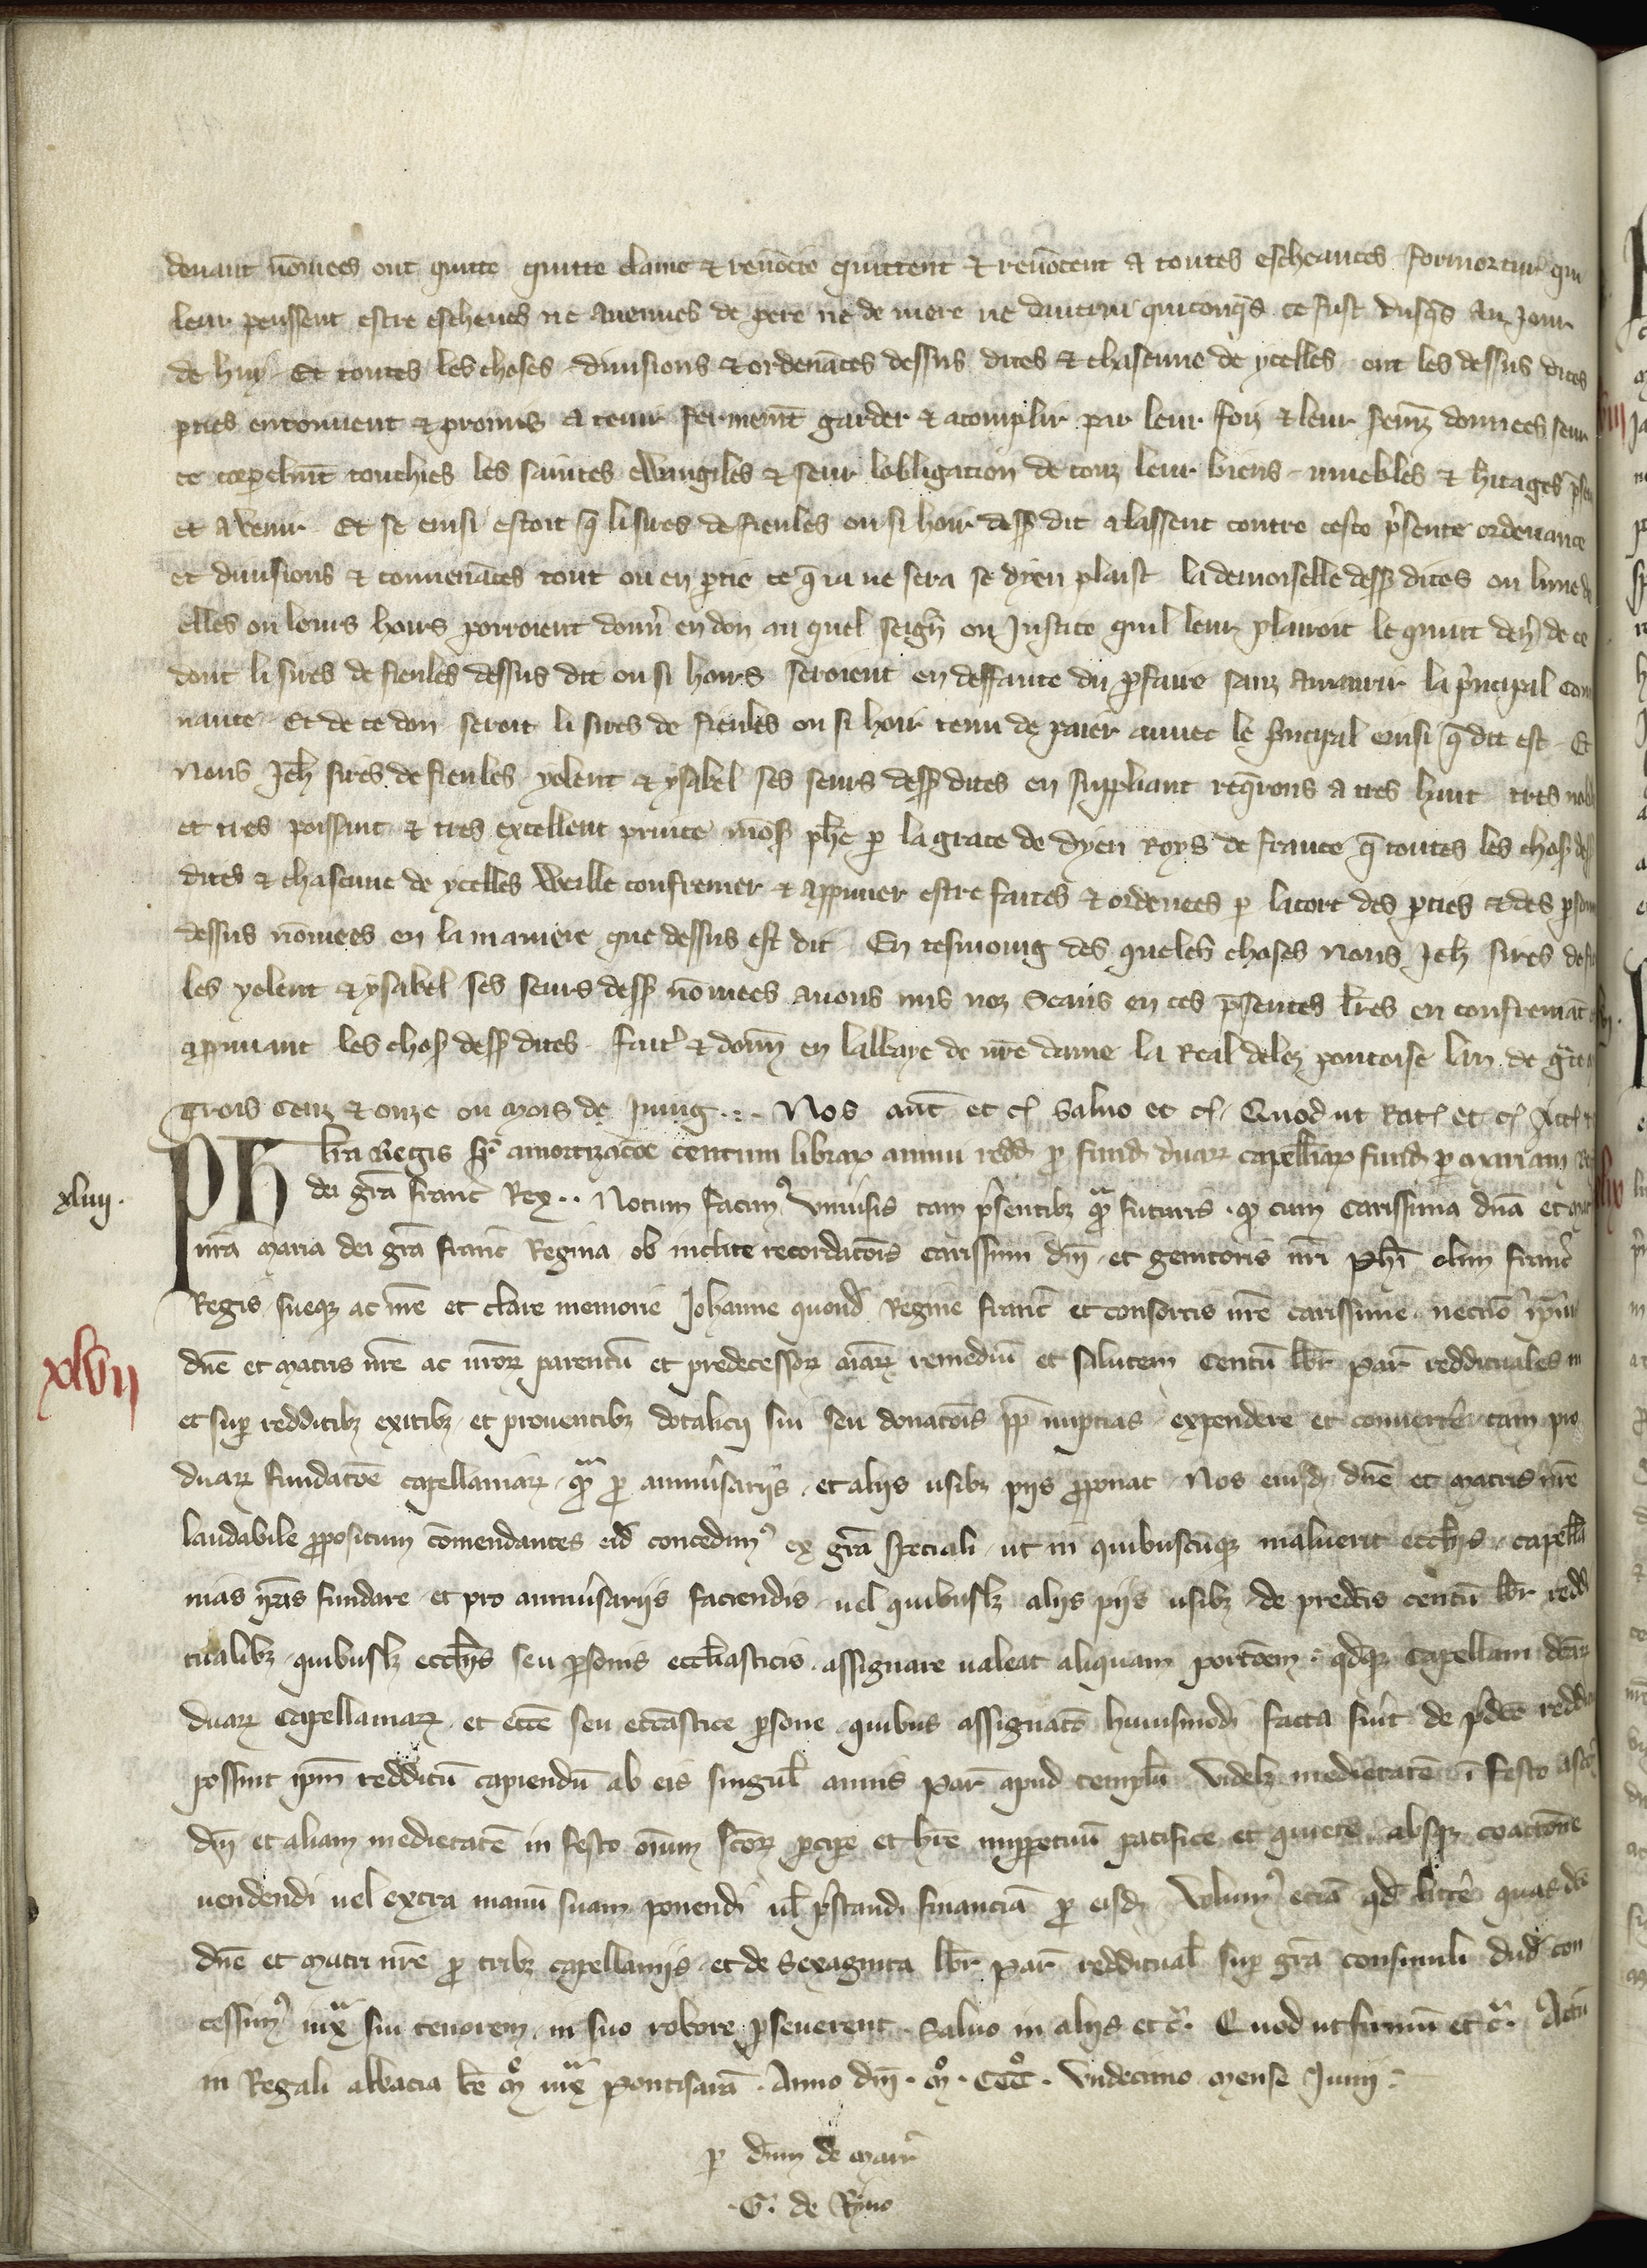 devant nōmees ont quitte quitte clame & renōcie quittent & renōcent a toutes escheances formorture qui
leur peussent estre escheues ne avenues de pere ne de mere ne dautrui quiconqs ce fust iusqs au iour
de hui Et toutes les choses divisions & ordenāces dessus dites & chascune de ycelles ont les dessus dites
pties enconvent & promis a tenir fermemt garder & acomplir par leur foiz & leur sermz donnees seur
ce corpelmt touchies les saintes ewangiles & seur lobligation de touz leur biens muebles & hitages psen
et avenir Et se ensi estoit q li sires de fieules ou si hoir dess dit alassent contre ceste psente ordenance
et divisions & convenāces tout ou en ptie ce q ia ne sera se dyeu plaist la demoiselle dess dites ou lune de
elles ou leurs hoirs porroient donn en don au quel seign ou justice quil leur plairoit le quint den de ce
dont li sires de fieules dessus dit ou si hoirs seroient en deffaute du pfaire sanz amanrir la pncipal con
nance Et de ce don seroit li sires de fieules ou si hoir tenu de paier avuec le pncipal ensi q dit est Et
nous Jeh sires de fieules yolent & ysabel ses seurs dess dites en suppliant reqrons a tres haut tres nobl
et tres poissant & tres excellent prince mons phe p la grace de dyeu Roys de france q toutes les chos dess
dites & chascune de ycelles weille confremer & appruver estre faites & ordenees p lacort des pties & des psonn
dessus nōmees en la maniere que dessus est dit En tesmoing des queles choses nous Jeh sires de fie
les yolent & ysabel ses seurs dess nōmees avons mis noz Seaus en ces psentes lres en confremāt &
appruvant les chos dess dites fait & donn en labbaye de nre dame la Real delez pontoise lan de gce
Trois cenz & onze ou mois de juing Nos aut et c Salvo et c Quod ut Rat et c Act
lra Regis sr amortizacōe centum librar annui redd p fund duar capelliar fund p mariam Re
xlvij. Ph dei gra franc Rex Notum facim univsis tam psentibz qm futuris q cum Carissima dnā et mat
nrā maria dei gra franc Regina ob inclite recordatōis carissimi dnī et genitoris nri Phi olim franc
Regis sueqz ac nre et clare memorie Johanne quond Regine franc et consortis nre carissime necnō ipius
xlvii dne et matris nre ac nror parentū et predecessor aīar remediū et salutem Centū lbr par reddituales in
et sup redditibz exitibz et proventibz dotalicij sui seu donatōis pp nuptias expendere et convertē tam pro
duar fundatōe capellaniar qm p annivsariis et aliis usibz piis pponat Nos eiusd dne et matris nre
laudabile ppositum cōmendantes eid concedim ex gra speciali ut in quibuscūqz maluerit eccliis capella
nias ipas fundare et pro annivsariis faciendis vel quibuslz aliis piis usibz de predcis centū lbr redd
tualibz quibuslz eccliis seu psonis eccliasticis assignare valeat aliquam portōem qdqz capellani dcar
duar Capellaniar et eccē seu eccāstice psone quibus assignatō huiusmodi facta fuit de pdco reddi
possint ipm redditū capiendū ab eis singul annis Par apud templū videlz medietatē ī festo asce
dnī et aliam medietatē in festo oīum scōr pcipe et hre imppetuū pacifice et quiete absqz coactōne
vendendi vel extra manū suam ponendi ul pstandi financiā p eisd Volum eciā qd littē quas dce
dne et matri nre p tribz capellaniis et de Sexaginta lbr par reddituāl sup gra consimili dud con
cessim iuxa sui tenorem in suo robore pseverent Salvo in aliis et c. Quod ut firmū et c. Actū
in Regali abbacia be m iuxa Pontisarā . Anno dnī . m . ccc . undecimo mense Junij
p dnm de mair
.G. de Ryno